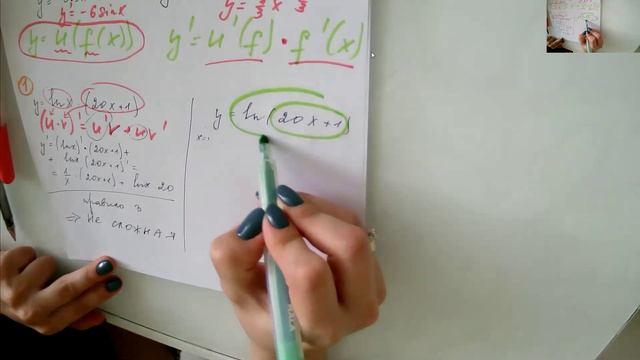 y' = -6sinx
y = u(f(x))
y' = u'(f) · f'(x)
1
y = lnx · (20x+1)
(u·v)' = u'v + uv'
y' = (lnx)' · (20x+1) +
+ lnx (20x+1)' =
= 1/x · (20x+1) + lnx 20
правило 3
⇒ не сложная
y = ln(20x+1)